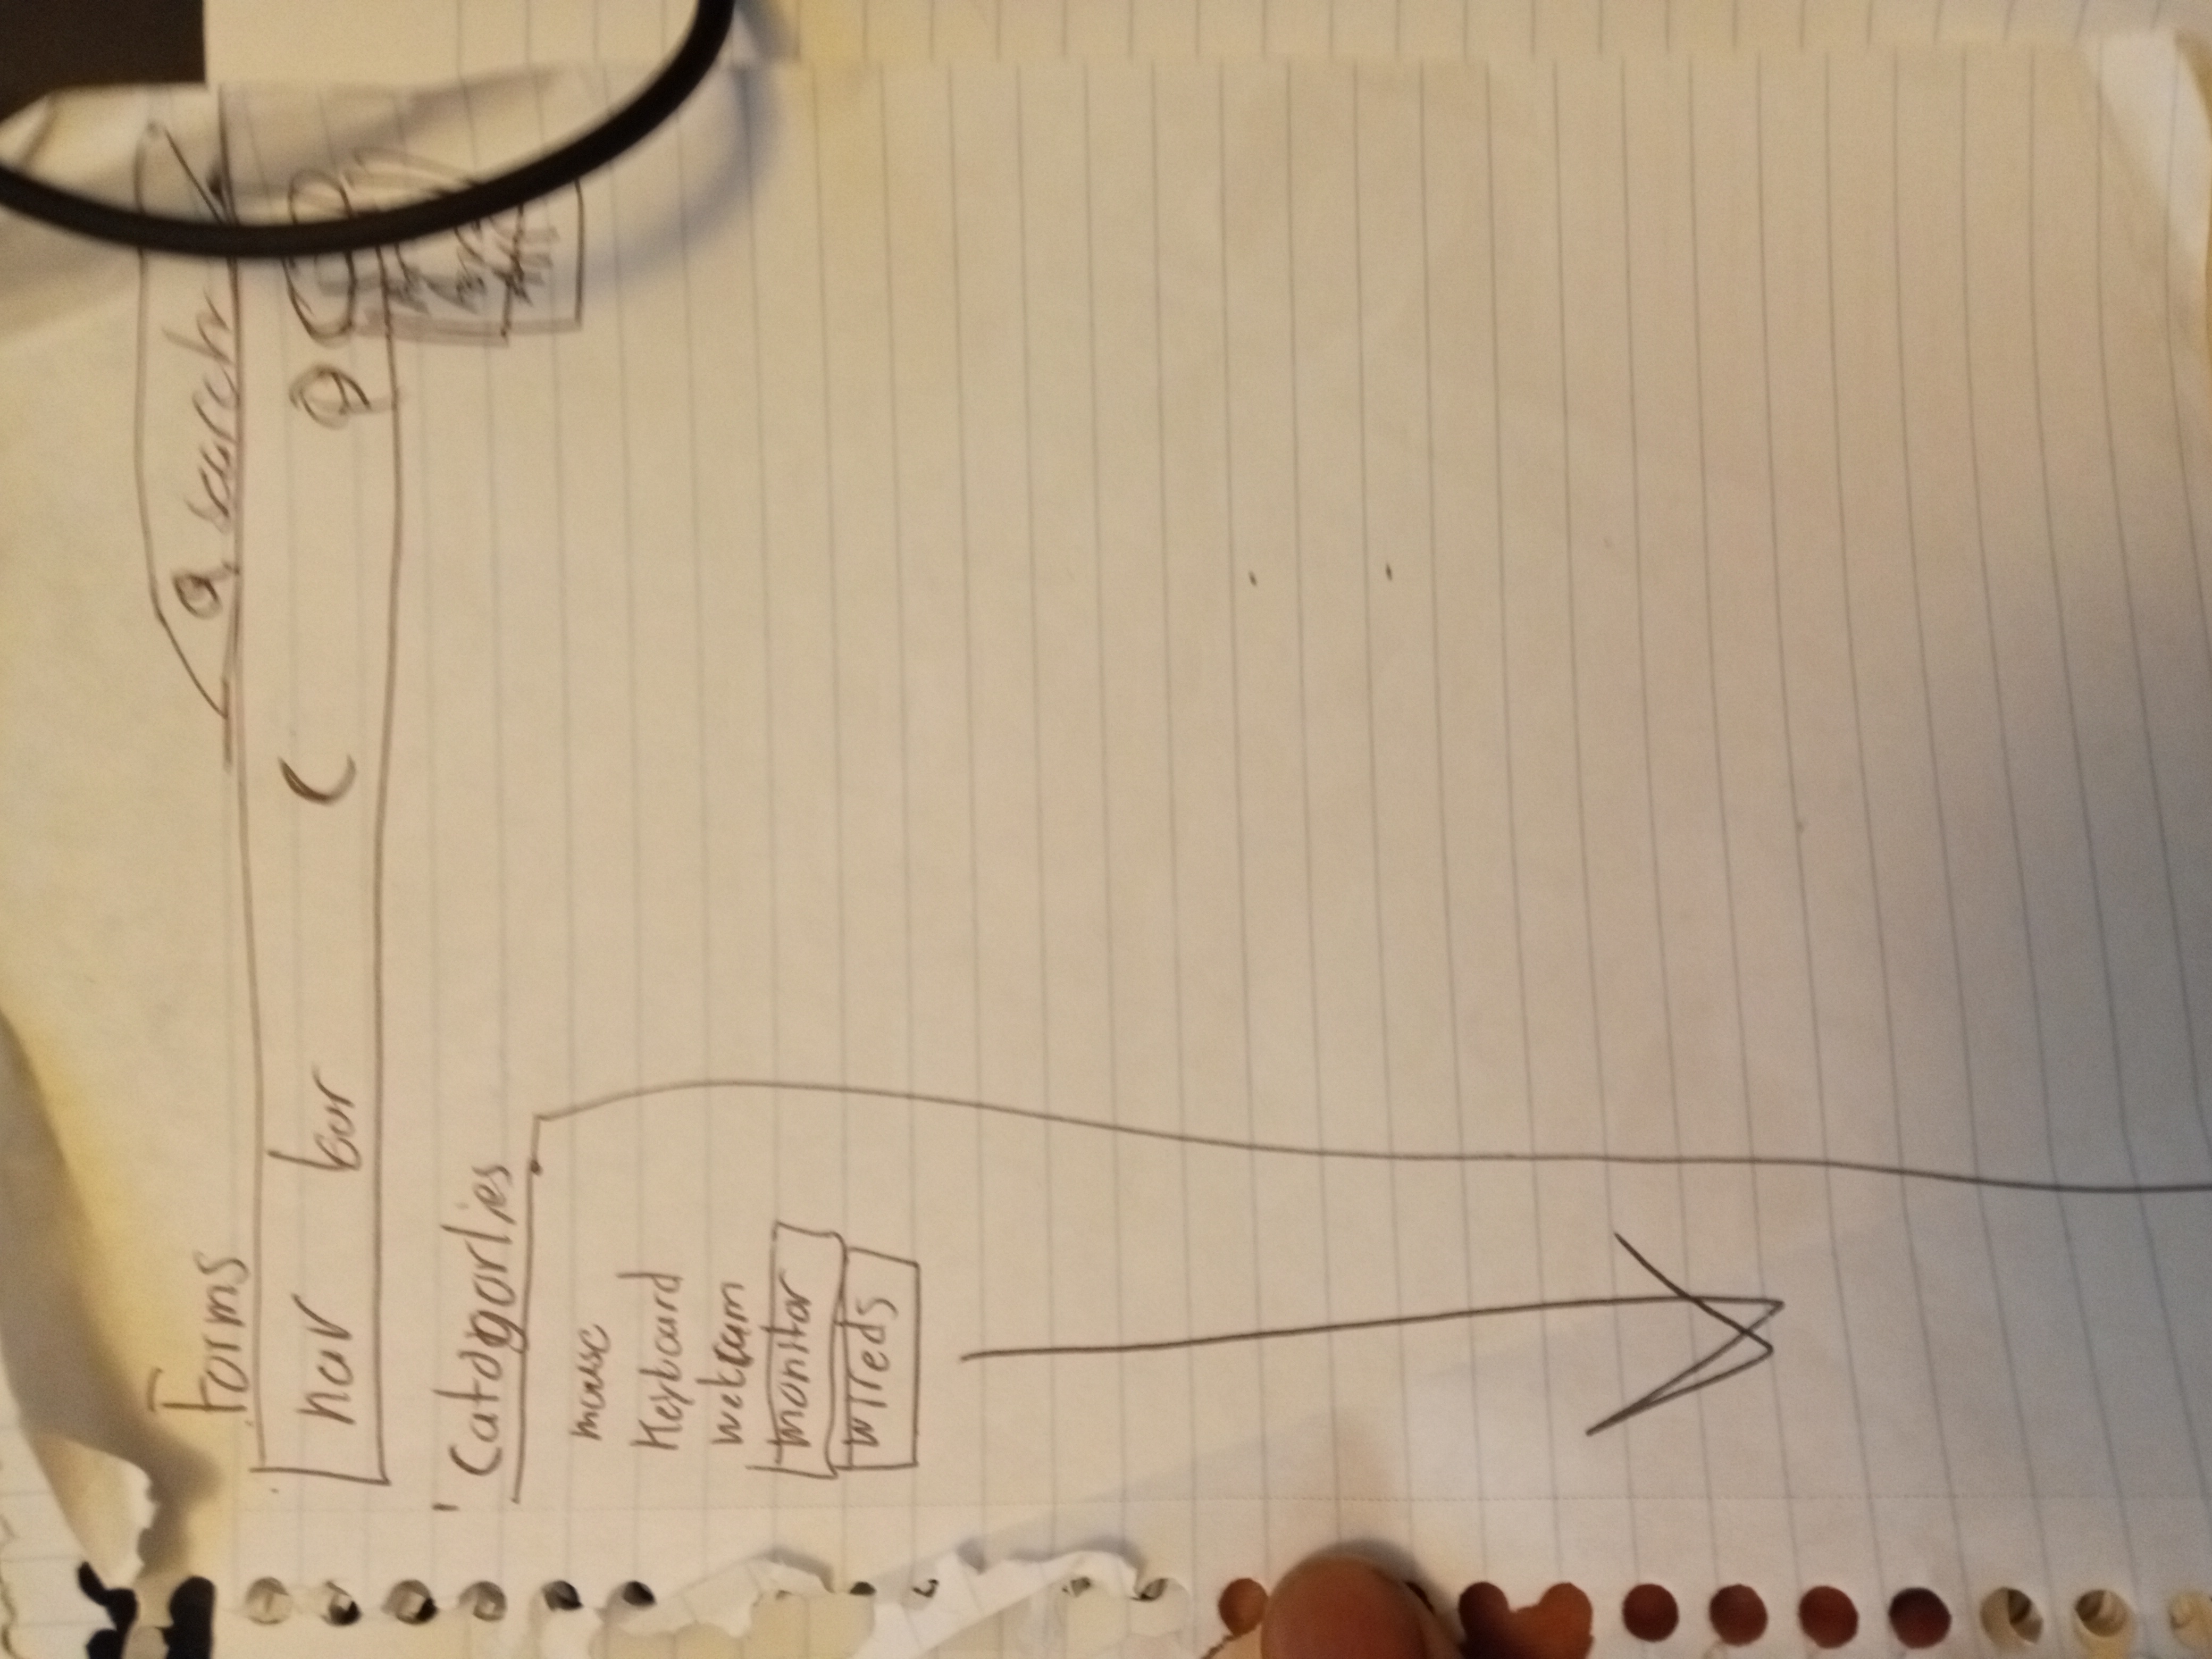 Forms
search
nav bar
Catagorlies
mouse
Keyboard
webcam
monitor
wireds